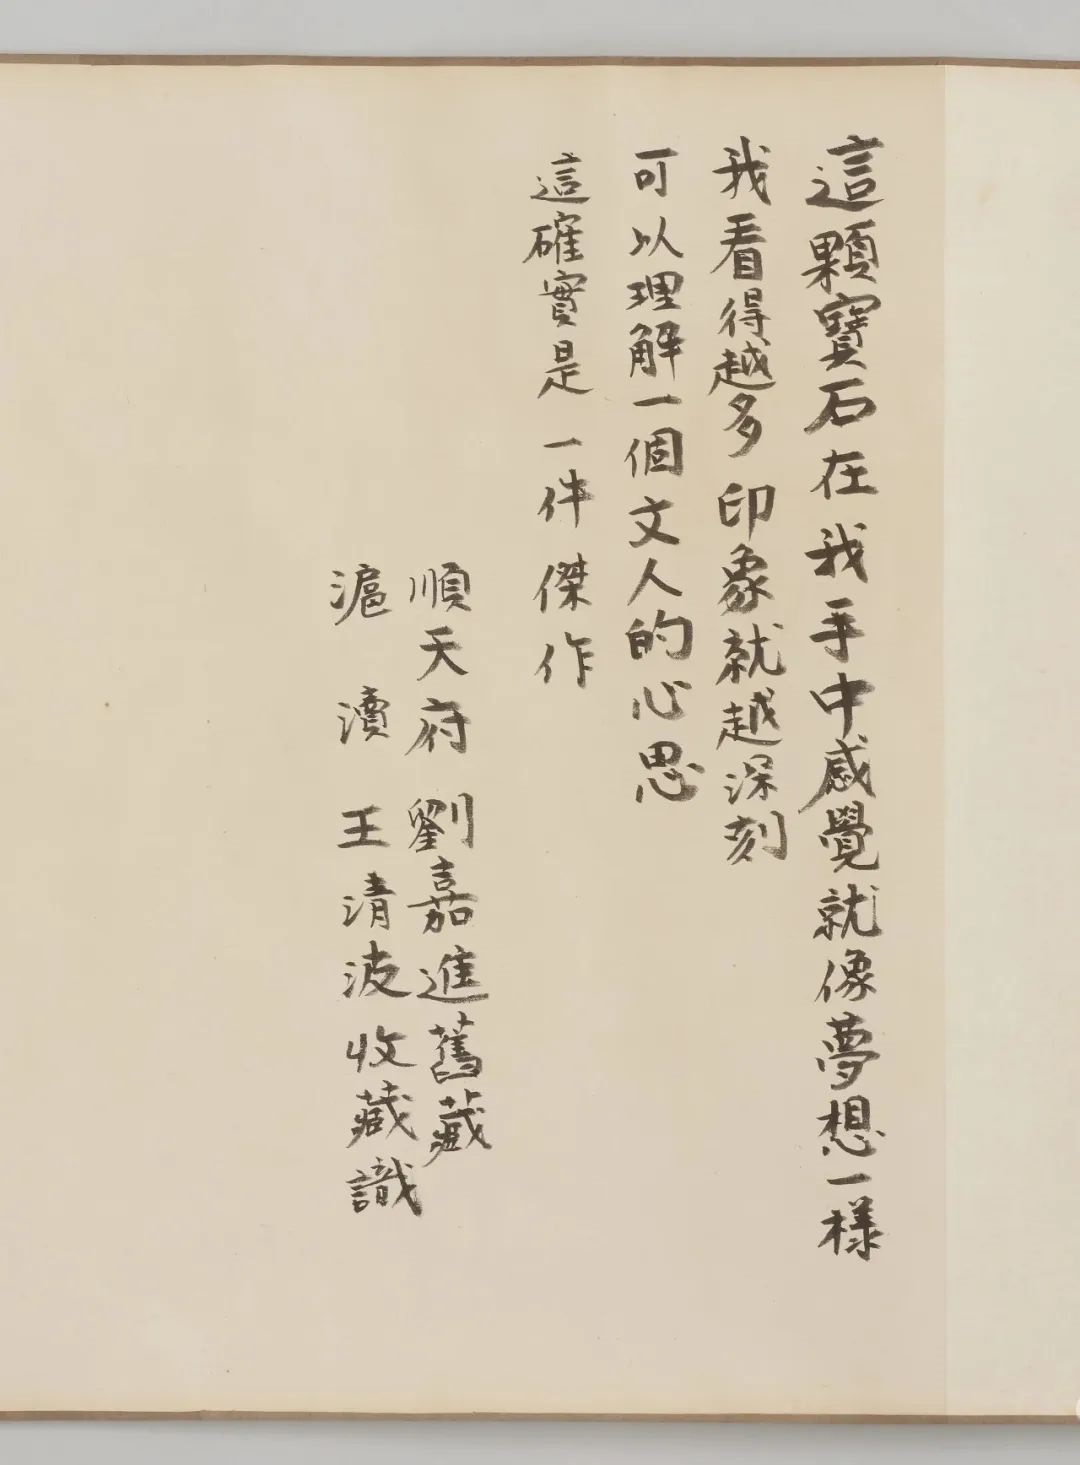 這顆寶石在我手中感覺就像夢想一樣
我看得越多印象就越深刻
可以理解一個文人的心思
這確實是一件傑作
順天府劉嘉進舊藏
滬瀆王清波收藏識